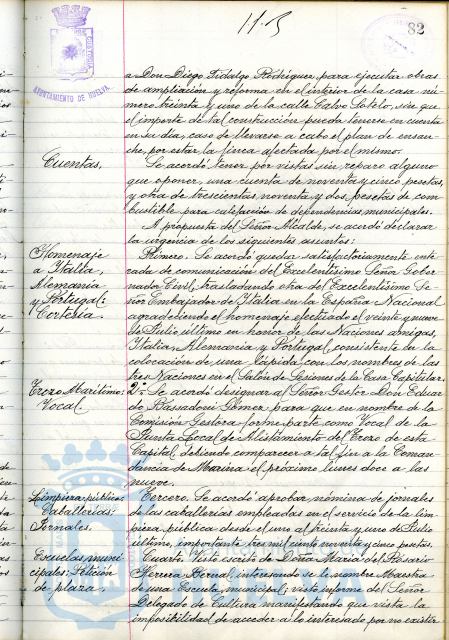 11-B
82
AYUNTAMIENTO DE HUELVA
a Don Diego Fidalgo Rodríguez, para ejecutar obras
de ampliación y reforma en el interior de la casa nú-
mero treinta y uno de la calle Calvo Sotelo, sin que
el importe de tal construcción pueda tenerse en cuenta
en su día, caso de llevarse a cabo el plan de ensan-
che, por estar la finca afectada por el mismo.
Cuentas,
Se acordó tener por vistas sin reparo alguno
que oponer, una cuenta de noventa y cinco pesetas,
y otra de trescientas, noventa y dos pesetas de com
bustible para calefacción de dependencias municipales.
A propuesta del Señor Alcalde, se acordó declarar
la urgencia de los siguientes asuntos:
Homenaje
a Italia,
Alemania
y Portugal:
Cortesía.
Primero. Se acordó quedar satisfactoriamente ente-
rada de comunicación del Excelentísimo Señor Gober
nador Civil, trasladando otra del Excelentísimo Se-
ñor Embajador de Italia en la España Nacional
agradeciendo el homenaje efectuado el veinte y nueve
de Julio último en honor de las Naciones amigas,
Italia, Alemania y Portugal, consistente en la
colocación de una lápida con los nombres de las
tres Naciones en el Salón de Sesiones de la Casa Capitular.
Trozo Marítimo:
Vocal.
2º. Se acordó designar al Señor Gestor Don Eduar
do Bassadoni Gómez para que en nombre de la
Comisión Gestora forme parte como Vocal de la
Junta Local de Alistamiento del Trozo de esta
Capital debiendo comparecer a tal fin a la Coman-
dancia de Marina el próximo lunes doce a las
nueve.
Limpieza pública:
Caballerías:
Jornales.
Tercero. Se acordó aprobar nómina de jornales
de las caballerías empleadas en el servicio de la lim-
pieza pública desde el uno al treinta y uno de Julio
último, importante tres mil ciento noventa y cinco pesetas.
Escuelas muni-
cipales: Petición
de plaza.
Cuarto. Visto escrito de Doña María del Rosario
Herrera Bernal, interesando se le nombre Maestra
de una Escuela municipal; visto informe del Señor
Delegado de Cultura manifestando que vista la
imposibilidad de acceder a lo interesado por no existir